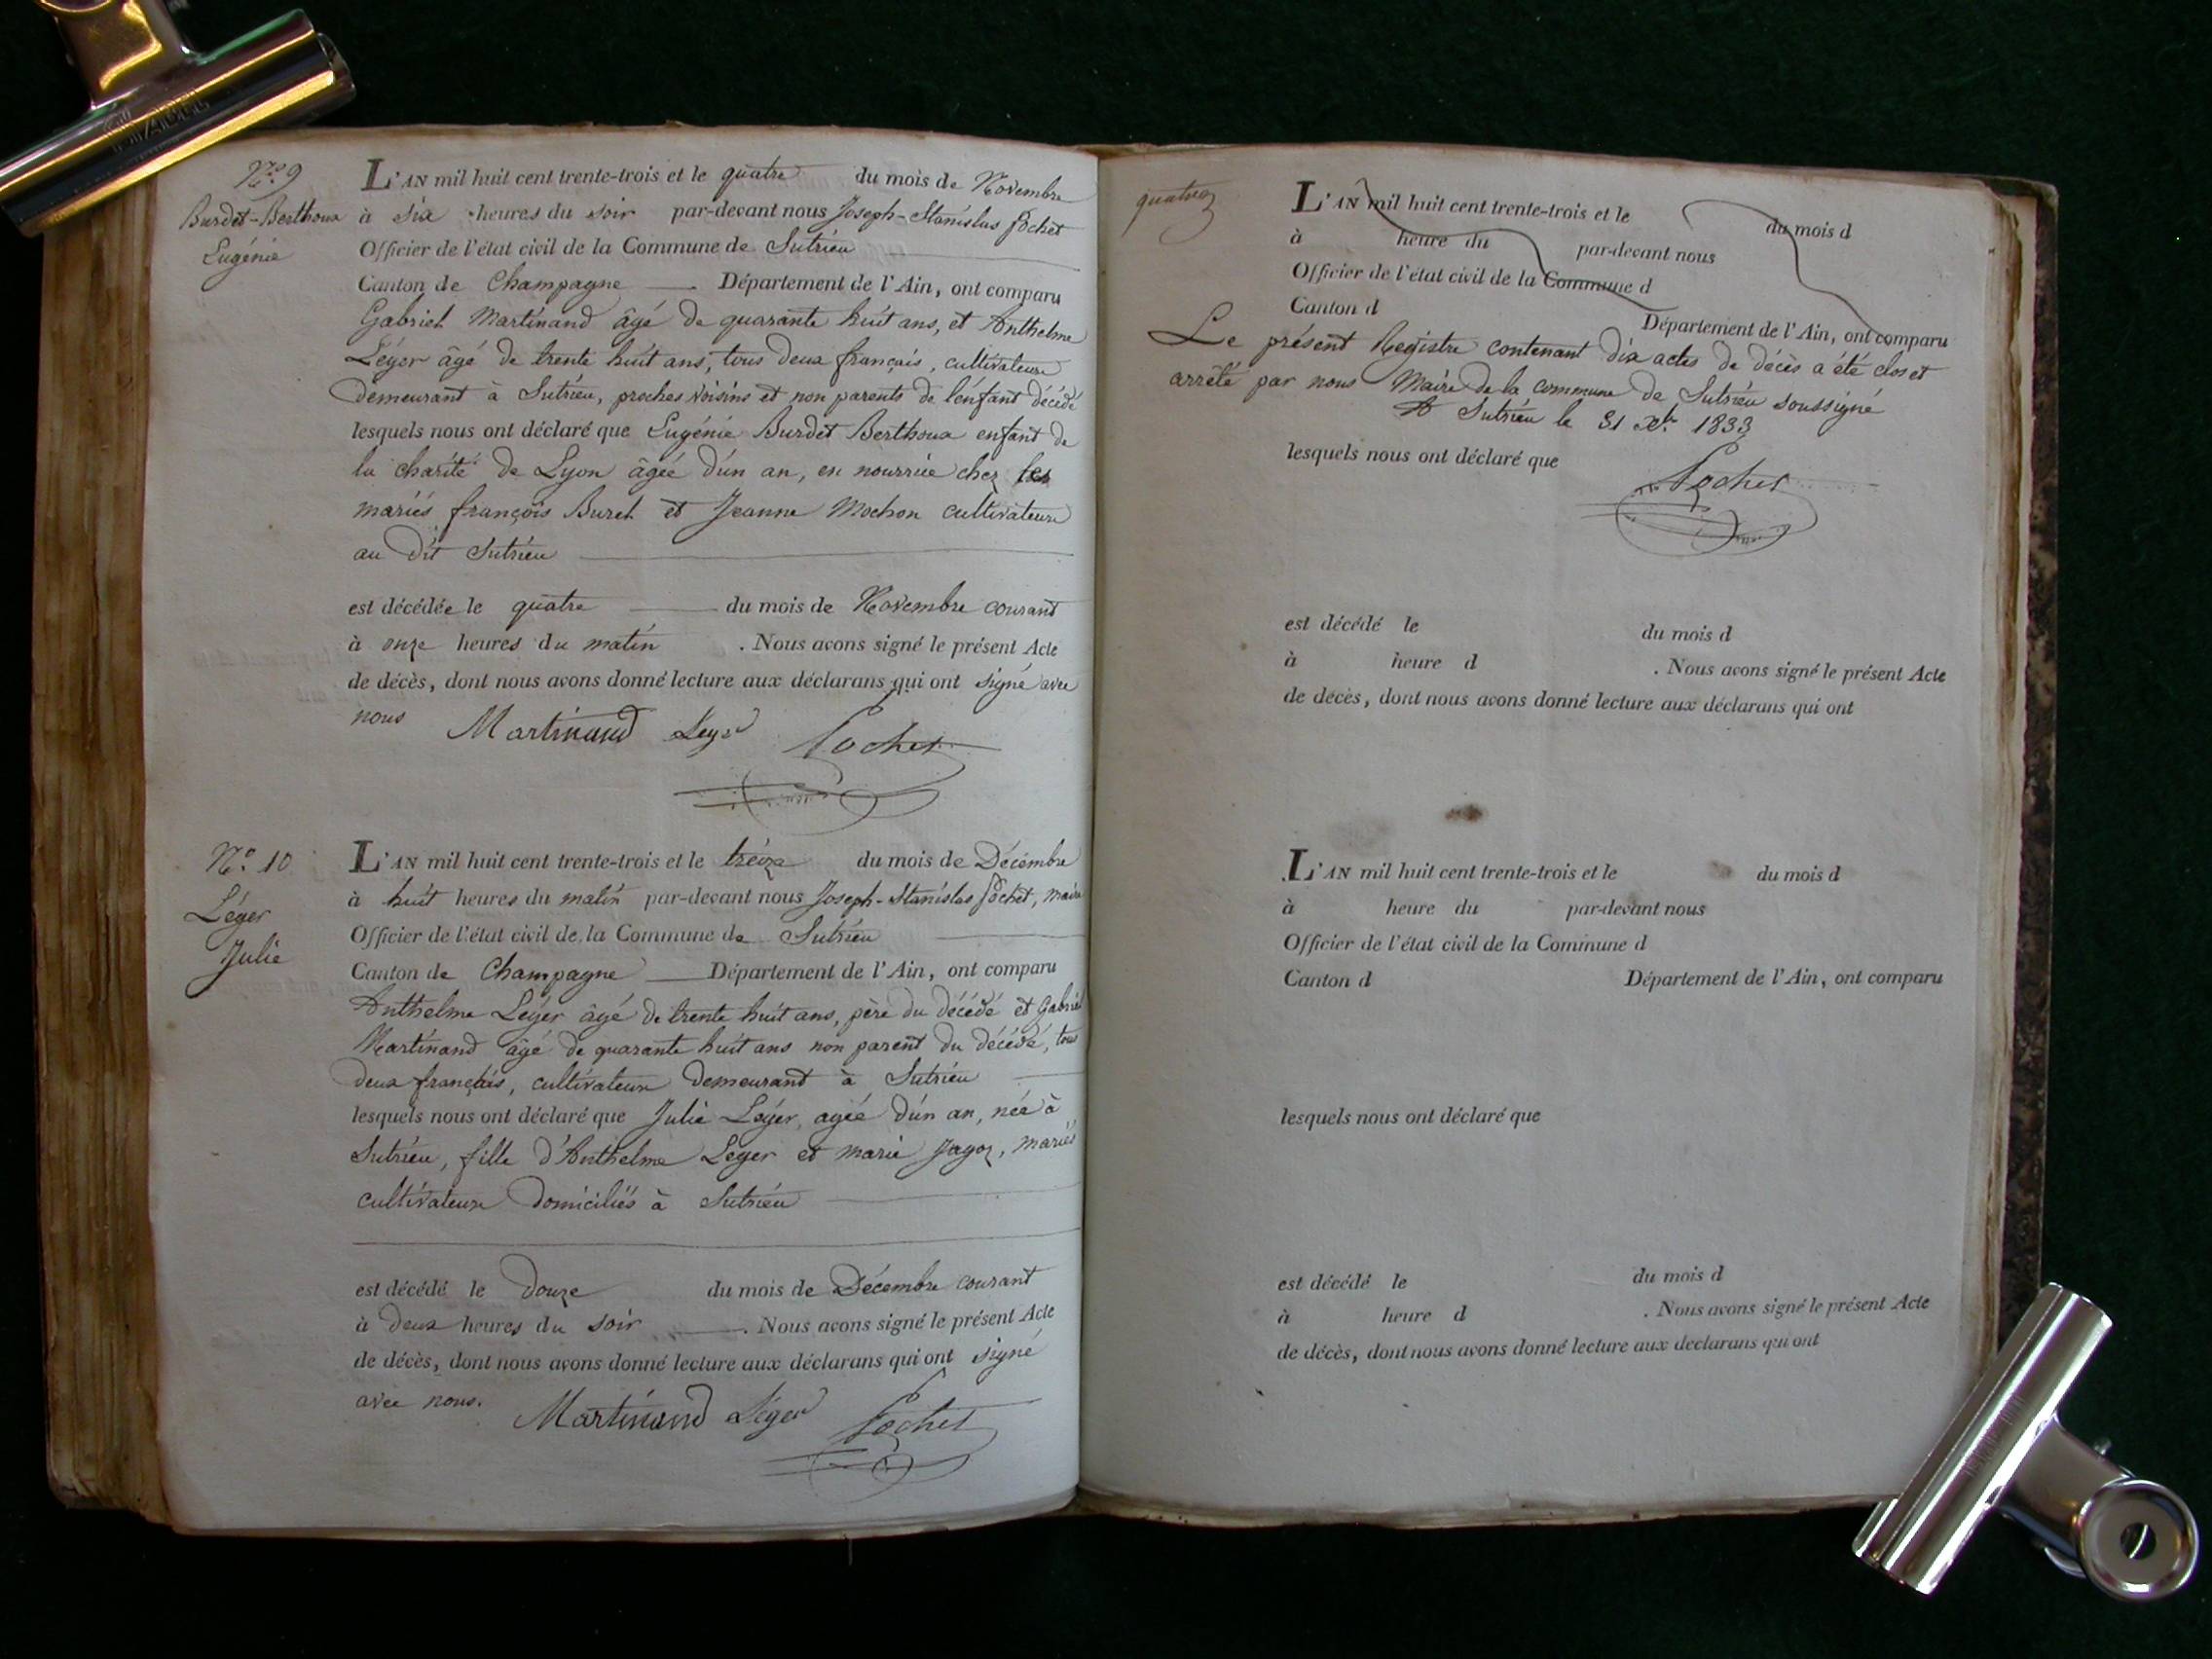 N.º 9
Burdet-Berthoux
Eugénie
L'AN mil huit cent trente-trois et le quatre du mois de Novembre
à six heures du soir par-devant nous Joseph-Stanislas Pochet
Officier de l'état civil de la Commune de Sutrieu
Canton de Champagne Département de l'Ain, ont comparu
Gabriel Martinand âgé de quarante huit ans, et Anthelme
Léger âgé de trente huit ans, tous deux français, cultivateurs
demeurant à Sutrieu, proches voisins et non parents de l'enfant décédé
lesquels nous ont déclaré que Eugénie Burdet Berthoux enfant de
la charité de Lyon âgée d'un an, en nourrice chez les
mariés françois Buret et Jeanne Mochon cultivateurs
au dit Sutrieu
est décédée le quatre du mois de Novembre courant
à onze heures du matin . Nous avons signé le présent Acte
de décès, dont nous avons donné lecture aux déclarans qui ont signé avec
nous Martinand Leger Pochet
N.º 10
Léger
Julie
L'AN mil huit cent trente-trois et le treize du mois de Décembre
à huit heures du matin par-devant nous Joseph-Stanislas Pochet, maire
Officier de l'état civil de la Commune de Sutrieu
Canton de Champagne Département de l'Ain, ont comparu
Anthelme Léger âgé de trente huit ans, père du décédé et Gabriel
Martinand âgé de quarante huit ans non parent du décédé, tous
deux français, cultivateurs demeurant à Sutrieu
lesquels nous ont déclaré que Julie Léger, agée d'un an, née à
Sutrieu, fille d'Anthelme Leger et marie Jagoz, mariés
cultivateurs domiciliés à Sutrieu
est décédé le douze du mois de Décembre courant
à deux heures du soir . Nous avons signé le présent Acte
de décès, dont nous avons donné lecture aux déclarans qui ont signé
avec nous. Martinand Léger Pochet
L'AN mil huit cent trente-trois et le du mois d
à heure du par-devant nous
Officier de l'état civil de la Commune d
Canton d Département de l'Ain, ont comparu
Le présent Registre contenant dix actes de décès a été clos et
arrêté par nous Maire de la commune de Sutrieu soussigné
A Sutrieu le 31 Xbre 1833
lesquels nous ont déclaré que
Pochet
est décédé le du mois d
à heure d . Nous avons signé le présent Acte
de décès, dont nous avons donné lecture aux déclarans qui ont
L'AN mil huit cent trente-trois et le du mois d
à heure du par-devant nous
Officier de l'état civil de la Commune d
Canton d Département de l'Ain, ont comparu
lesquels nous ont déclaré que
est décédé le du mois d
à heure d . Nous avons signé le présent Acte
de décès, dont nous avons donné lecture aux déclarans qui ont